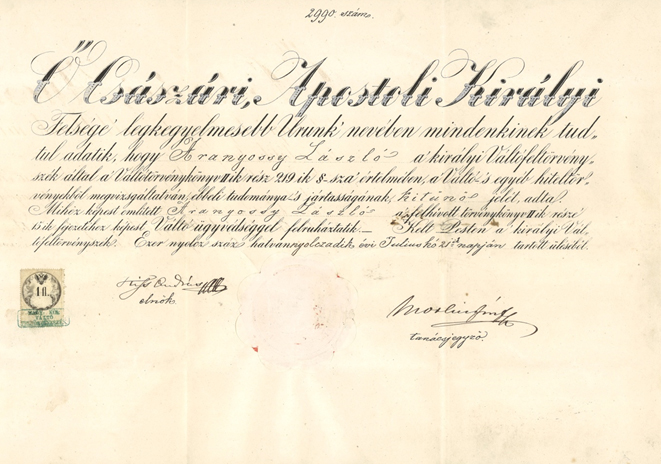 2990. szám.
Ő Császári, Apostoli Királyi
Felsége legkegyelmesebb Urunk nevében mindenkinek tud-
tul adatik, hogy Aranyossy László a királyi Váltófeltörvény-
szék által a Váltótörvénykönyv II ik rész 219 ik §-sza értelmében, a Váltó s egyéb hiteltör-
vényekből megvizsgáltatván, ebbeli tudománya s jártasságának, kitünő jelét adta.
Mihez képest említett Aranyossy László a felhívott törvénykönyv II ik része
15 ik fejezetéhez képest Váltó ügyvédséggel felruháztatik. — Kelt Pesten a királyi Vál-
tófeltörvényszék Ezer nyolcz száz hatvannyolczadik évi Julius hó 21én napján tartott üléséből.
elnök.
tanácsjegyző.
1 fl.
MAGY. KIR.
VÁLTÓ